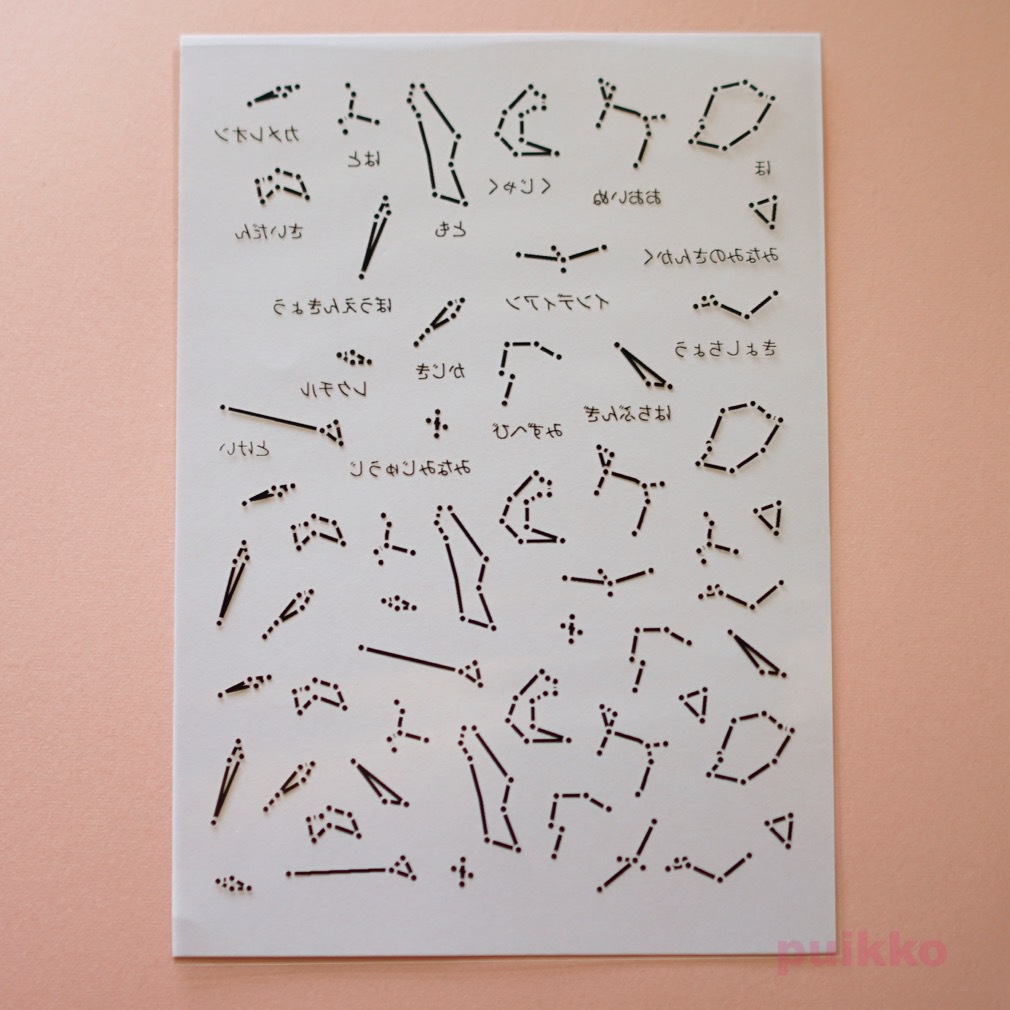 カメレオン
はと
とも
くじゃく
おおいぬ
ほ
さいだん
ぼうえんきょう
インディアン
みなみのさんかく
かじき
きょしちょう
レクチル
みずへび
はちぶんぎ
とけい
みなみじゅうじ
puikko